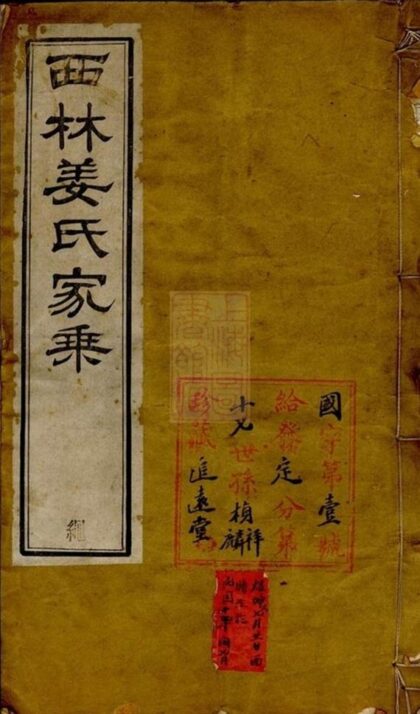 西林姜氏家乘
國字第壹號
給發定分第
世孫楨祥麟
珍藏追遠堂
上海圖書館